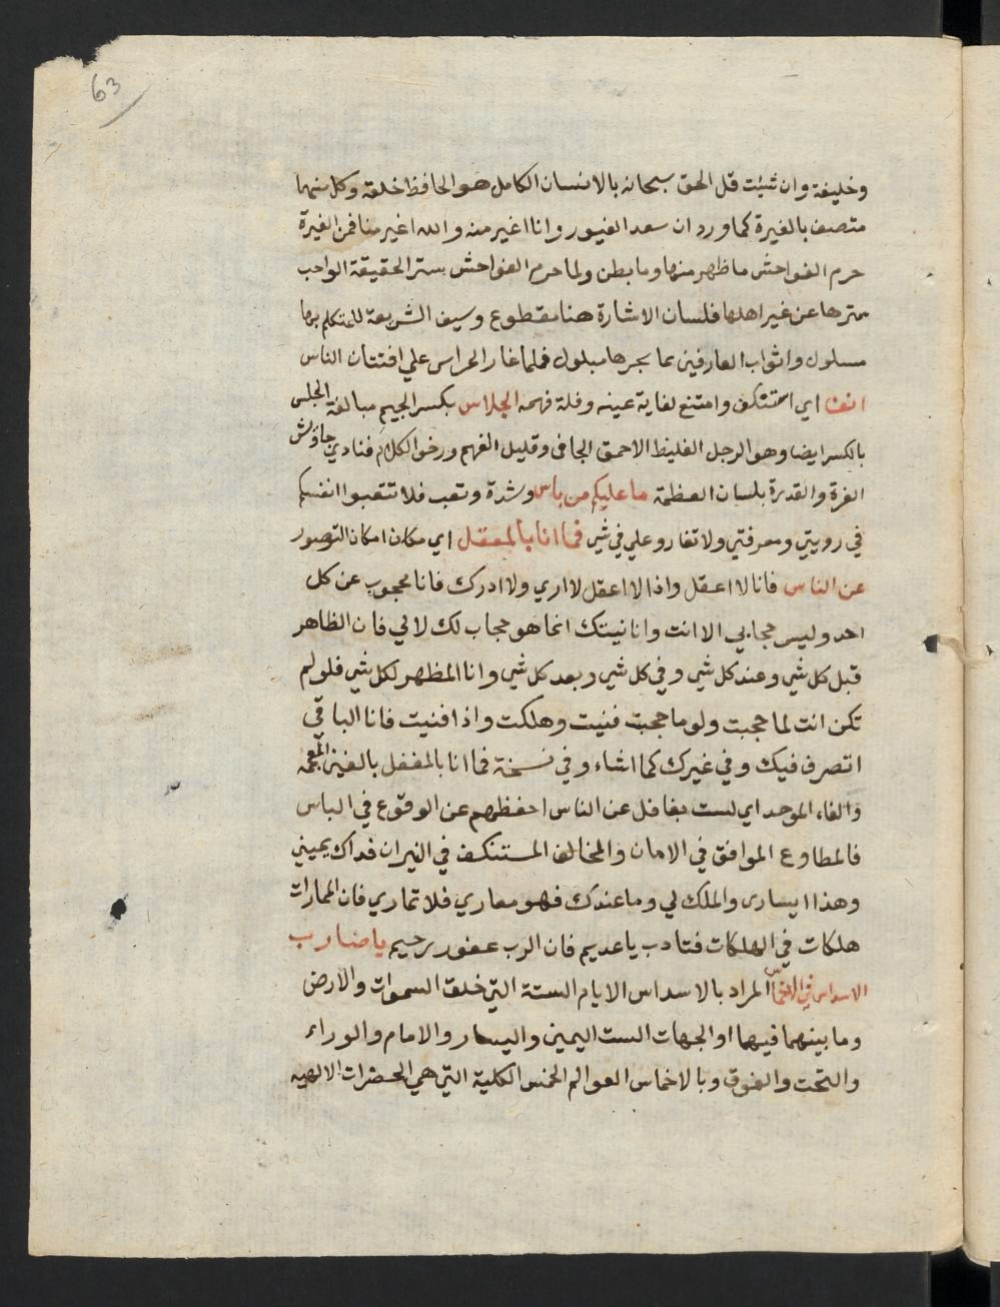 63
وخليفة وان شئت قل الحق سبحانه بالانسان الكامل هو الحافظ خلقه وكل منهما
متصف بالغيرة كما ورد ان سعد الغيور وانا اغير منه والله اغير منا فمن الغيرة
حرم الفواحش ما ظهر منها وما بطن ولما حرم الفواحش بستر الحقيقة الواجب
سترها عن غير اهلها فلسان الاشارة هنا مقطوع وسيف الشريعة للمتكلم بها
مسلول واثواب العارفين عما بجرها مبلول فلما غار الحراس علي افتتان الناس
انف اي استنكف وامتنع لغاية عينه وقلة فهمه الجلاس بكسر الجيم مبالغة الجلس
بالكسر ايضا وهو الرجل الغليظ الاحمق الجافي وقليل الفهم ورخو الكلام فنادي جاوش
الغرة والقدرة بلسان العظمة ما عليكم من باس وشدة وتعب فلا تتعبوا انفسكم
في رويتي ومعرفتي ولا تغاروا علي في شي فما انا بالمعقل اي مكان امكان التصور
عن الناس فانا لا اعقل واذا لا اعقل لا اري ولا ادرك فانا محجوب عن كل
احد وليس حجابي الا انت وانانيتك انما هو حجاب لك لا لي فان الظاهر
قبل كل شي وعند كل شي وفي كل شي وبعد كل شي وانا المظهر لكل شي فلو لم
تكن انت لما حجبت ولو ما حجبت فنيت وهلكت واذا فنيت فانا الباقي
اتصرف فيك وفي غيرك كما اشاء وفي نسخة فما انا بالمغفل بالغين المعجمة
والفاء الموحد اي لست بغافل عن الناس احفظهم عن الوقوع في الباس
فالمطاوع الموافق في الامان والمخالف المستنكف في النيران فداك يميني
وهذا يساري والملك لي وما عندك فهو معاري فلا تماري فان الممارات
هلكات في الهلكات فتادب يا عديم فان الرب غفور رحيم يا ضارب
الاسداس في الاخماس المراد بالاسداس الايام الستة التي خلق السموات والارض
وما بينهما فيها او الجهات الست اليمين واليسار والامام والوراء
والتحت والفوق وبالاخماس العوالم الخمس الكلية التي هي الحضرات الالهية